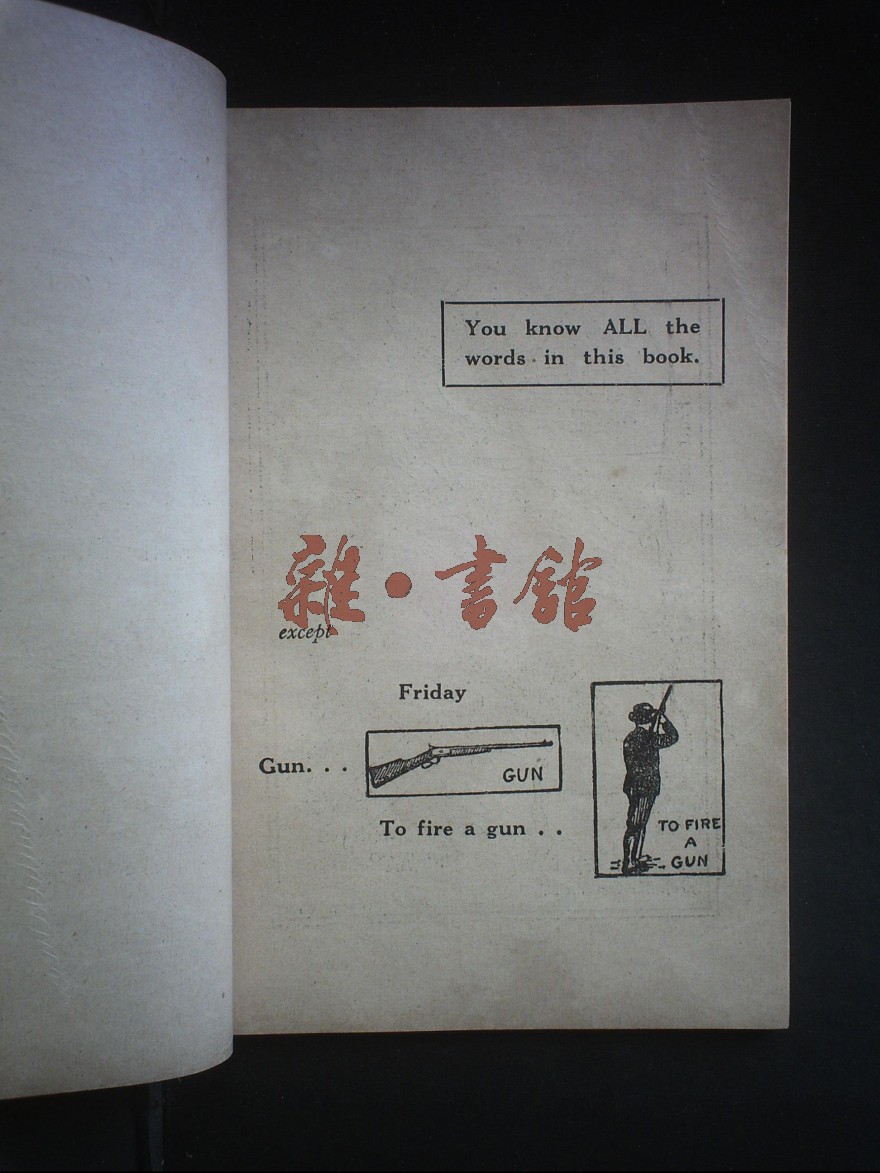 You know ALL the
words in this book.
雜·書館
except
Friday
Gun. . .
GUN
To fire a gun . .
TO FIRE
A
GUN